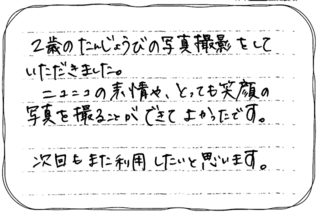 2歳のたんじょうびの写真撮影をして
いただきました。
ニコニコの表情や、とっても笑顔の
写真を撮ることができてよかったです。
次回もまた利用したいと思います。